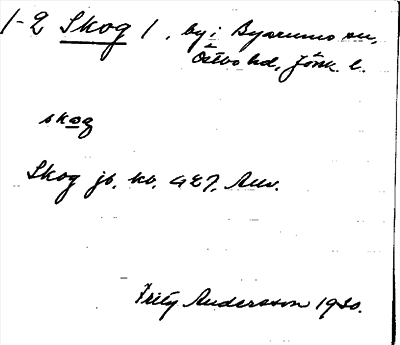 1-2 Skog 1, by i Byarums sn,
Östbo hd, Jönk. l.
skog
Skog jb, kb, GEK, Anv.
Fritz Andersson 1930.